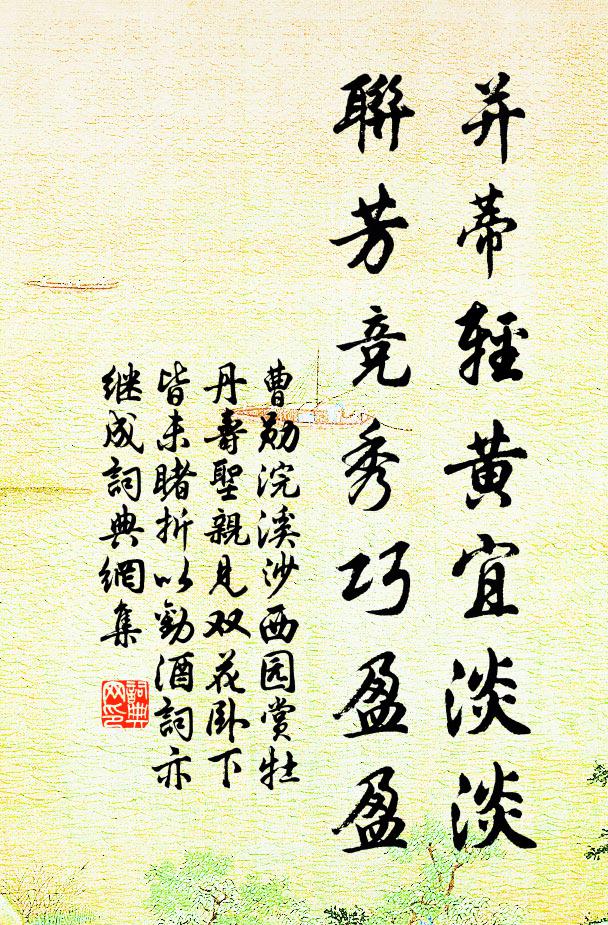 并蒂輕黄宜淡淡
聯芳竞秀巧盈盈
曹勋浣溪沙西园赏牡
丹壽聖親見双花卧下
皆未睹折以勸酒詞亦
继成詞典網集
詞典
网印